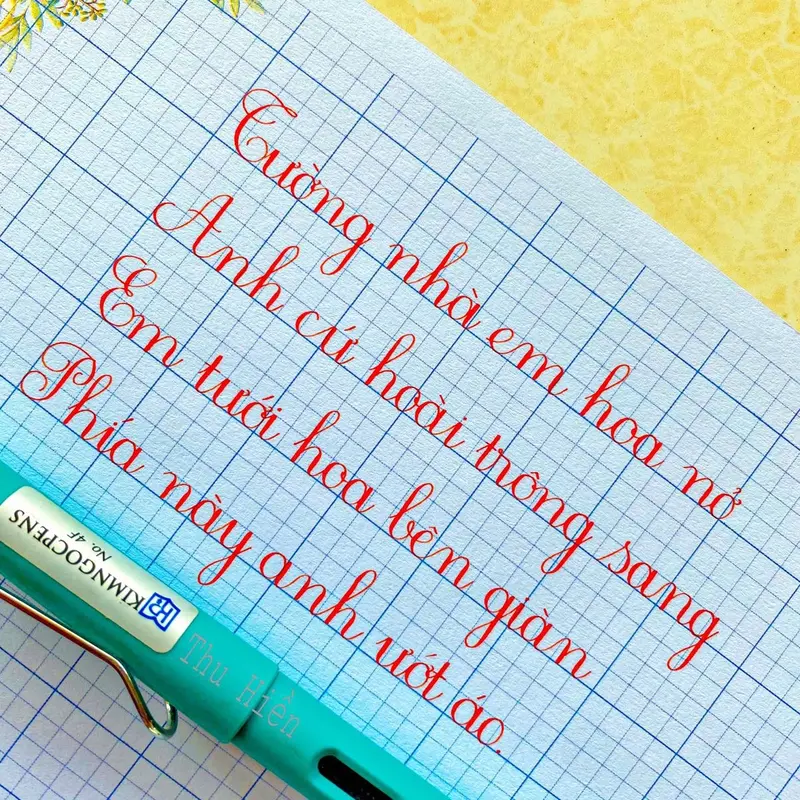 Tường nhà em hoa nở
Anh cứ hoài trông sang
Em tưới hoa bên giàn
Phía này anh ướt áo.
KIMNGOCPENS
No. 4F
Thu Hiền